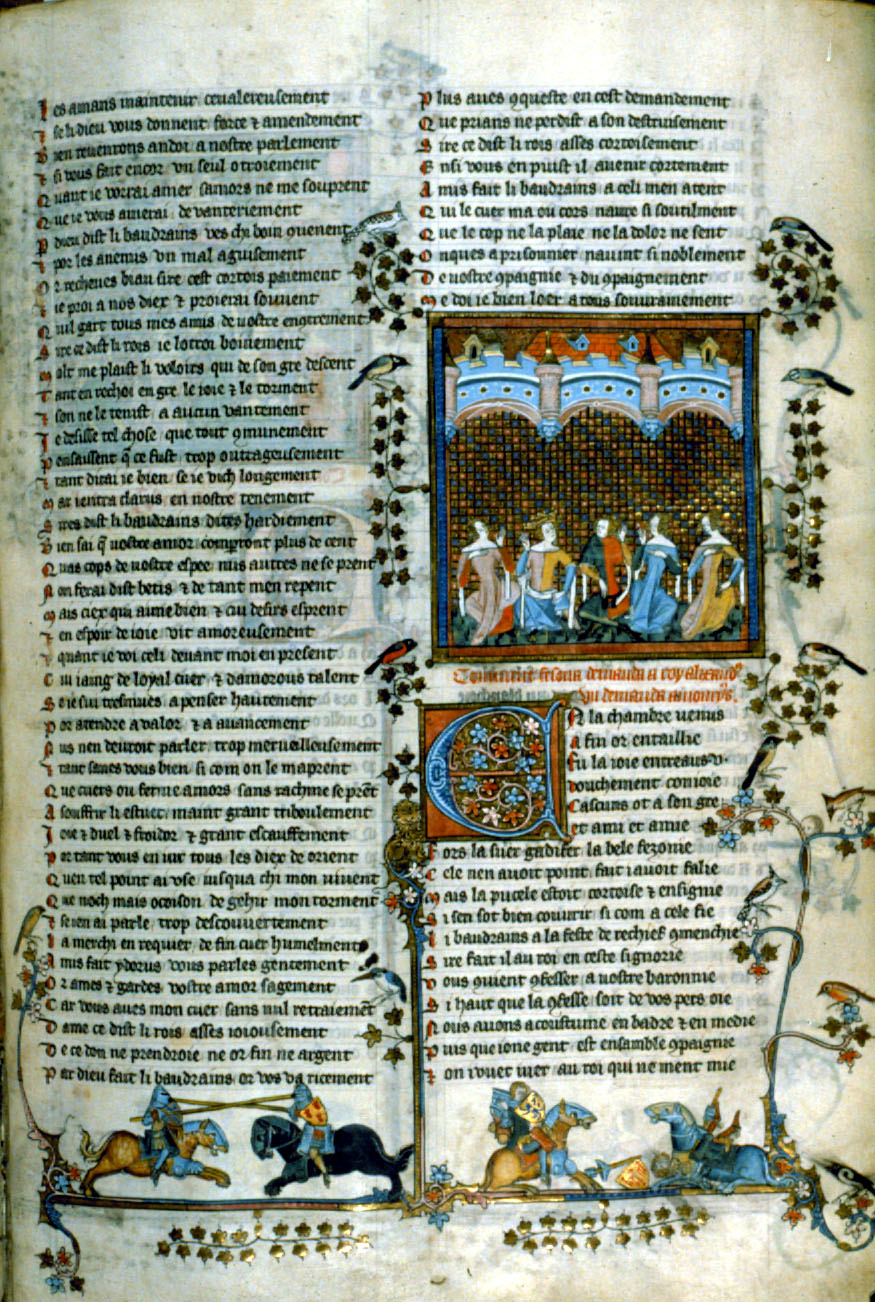 Les amans maintenir cevalereusement
⁊ se li dieu vous donnent force ⁊ amendement
Bien reventrons andoi a nostre parlement
⁊ si vous fait encor vn seul otroiement
Quant ie vorrai amer samors ne me souprent
Que ie vous amerai de vanteriement
Por dieu dist li baudrains ves chi boin quenent
por les anemis vn mal aguisement
Or recheves biau sire cest cortois paiement
⁊ ie proi a nos diex ⁊ proierai souvent
Quil gart tous mes amis de vostre enqrement
Sire ce dist li rois ie lotroi boinement
Molt me plaist li voloirs qui de son gre descent
Tant en rechoi en gre le ioie ⁊ le torment
⁊ son ne le tenist a aucun vantement
Ie desisse tel chose que tout ꝯmunement
Pensaissent q̄ ce fust trop outrageusement
⁊ tant dirai ie bien se ie vich longement
Mar ientra clarus en nostre tenement
Sires dist li baudrains dites hardiement
Bien sai q̄ vostre amor comprront plus de cent
Quas cops de vostre espee nus autres ne se prent
Non ferai dist betis ⁊ de tant men repent
Mais ciex qui aime bien ⁊ cui desirs esprent
⁊ en espoir de ioie vit amoreusement
⁊ quant ie voi celi devant moi en present
Cui iaing de loyal cuer ⁊ damorous talent
Se ie sui tresmues a penser hautement
Por atendre a valor ⁊ a avancement
Nus nen devroit parler trop merveilleusement
⁊ tant saves vous bien si com on le maprent
Que cuers ou ferme amors sans rachine se prēt
A souffrir li estuet maint grant triboulement
Ioie ⁊ duel ⁊ froidor ⁊ grant escauffement
Por tant vous en iur tous les diex de orient
Quen tel point ai vse iusqua chi mon iuvent
Que noch mais ocoison de gehir mon torment
⁊ se ien ai parle trop descouvertement
Ia merchi en requier de fin cuer humelment
Amis fait ydorus vous parles gentement
Or ames ⁊ gardes vostre amor sagement
Car vous aves mon cuer sans nul retraiemēt
Dame ce dist li rois asses ioiousement
De ce don ne prendroie ne or fin ne argent
Par dieu fait li baudrains or vos va ricement
Plus aves ꝯqueste en cest demandement
Que prians ne perdist a son destruisement
Sire ce dist li rois asses cortoisement
Ensi vous en puist il avenir cortement
Amis fait li baudrains a celi men atent
Qui le cuer ma ou cors navre si soutilment
Que le cop ne la plaie ne la dolor ne sent
Onques a prisonnier navint si noblement
De vostre ꝯpaignie ⁊ du ꝯpaignement
Me doi ie bien loer a tous souvrainement
Comment fesona demanda a
vn demanda
En la chambre venus
a fin or entaillie
Fu la ioie entreaus
douchement conioie
Cascuns ot a son gre
et ami et amie
Fors la suer gadifer la bele fezonie
Cele nen avoit point fait i avoit falie
Mais la pucele estoit cortoise ⁊ ensignie
Si sen sot bien couvrir si com a cele fie
Li baudrains a la feste de rechief ꝯmenchie
Sire fait il au roi en ceste signorie
Vous quient ꝯfesser a nostre baronnie
Si haut que la ꝯfesse soit de vos pers oie
Nous avons acoustume en badre ⁊ en medie
Puis que ione gent est ensamble ꝯpaignie
au roi qui ne ment mie